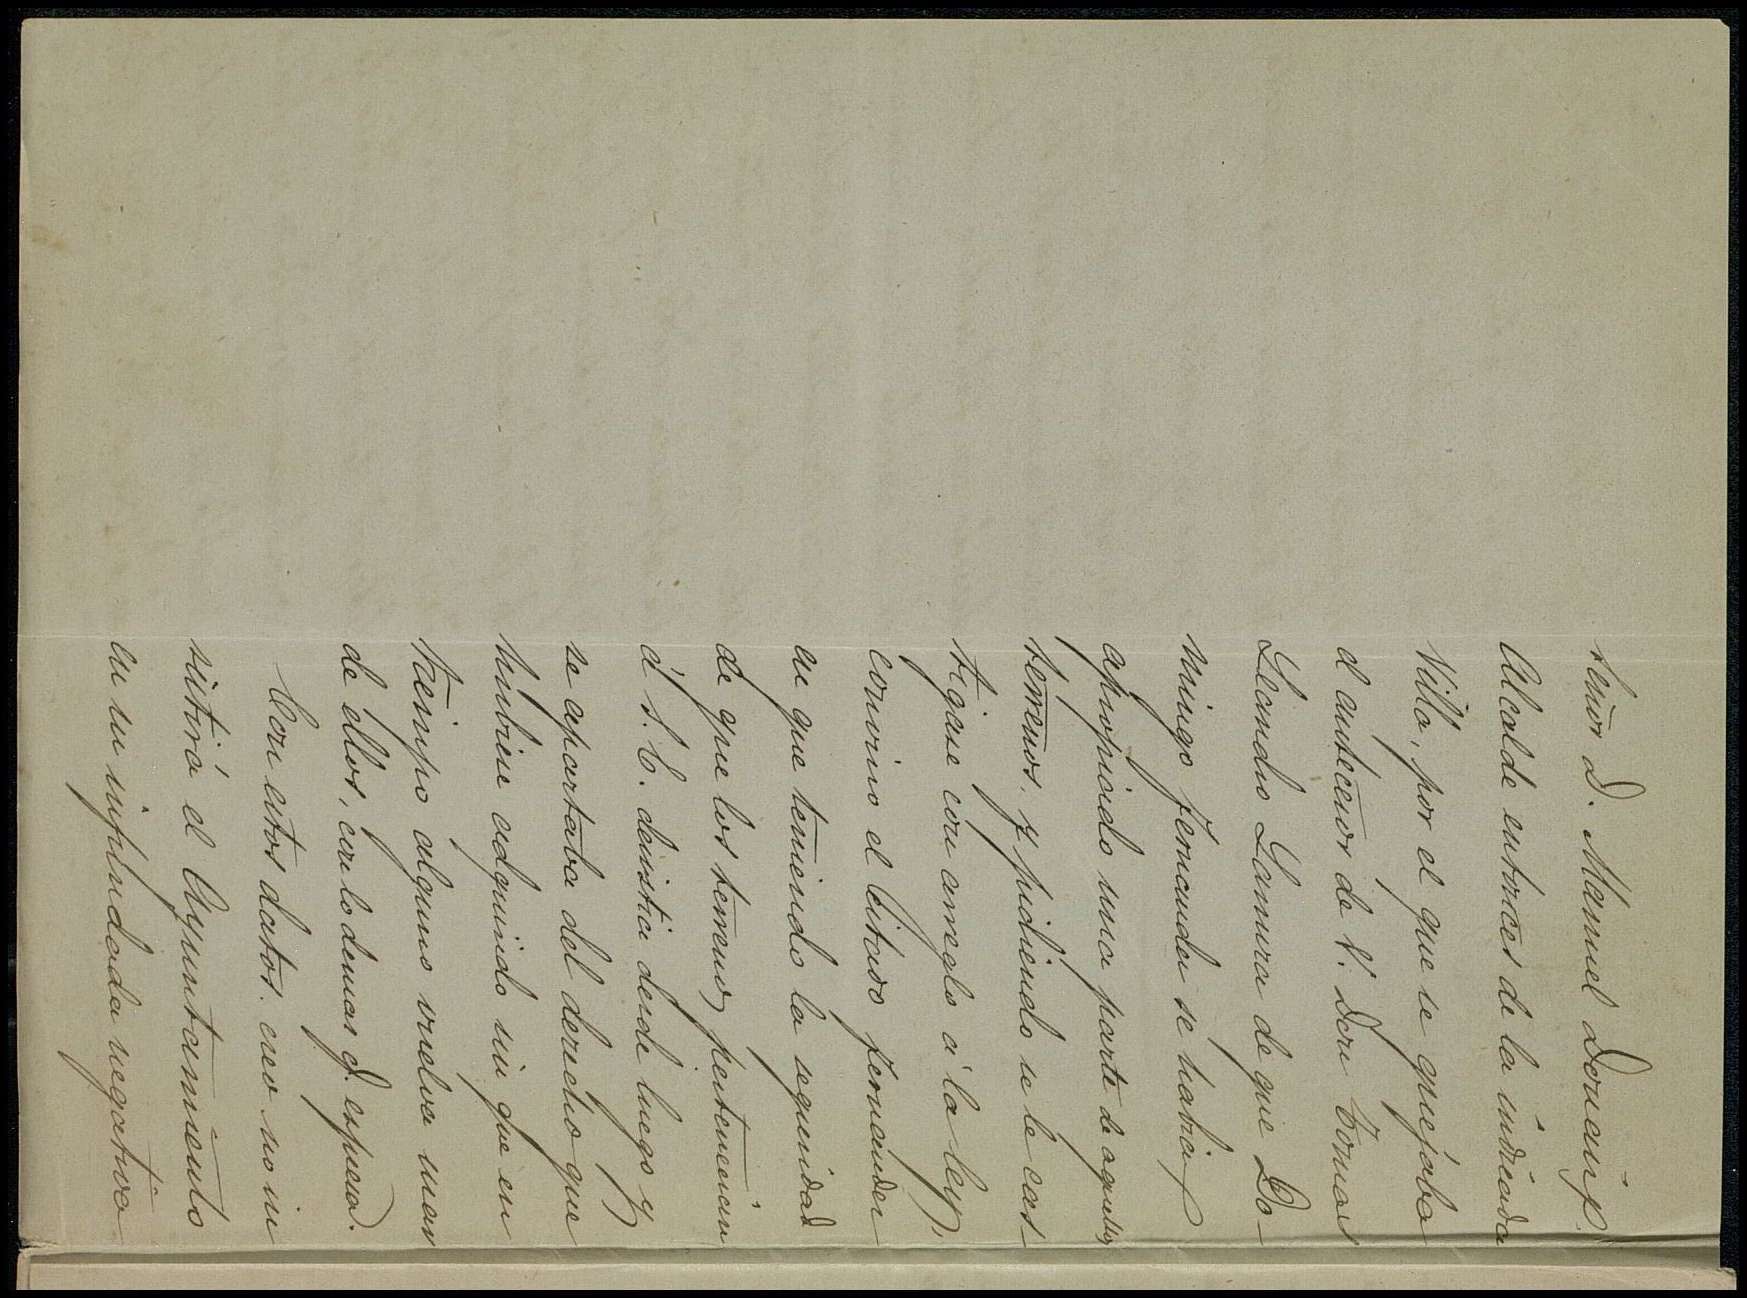 señor D. Manuel Donaire
Alcalde entonces de la indicada
Villa, por el que se quejaba
al antecesor de V. Don Tomas
Leandro Lamuza de que Do-
mingo Fernandez se habia
apropiado una parte de aquellos
terrenos, y pidiendo se le cas-
tigase con arreglo a la ley,
convino el citado Fernandez
en que teniendo la seguridad
de que los terrenos pertenecian
á S. E. desistia desde luego y
se apartaba del derecho que
hubiese adquirido sin que en
tiempo alguno vuelva usar
de ellos, con lo demas q.e expresa.
Con estos datos creo no in
sistirá el Ayuntamiento
en su infundada negativa